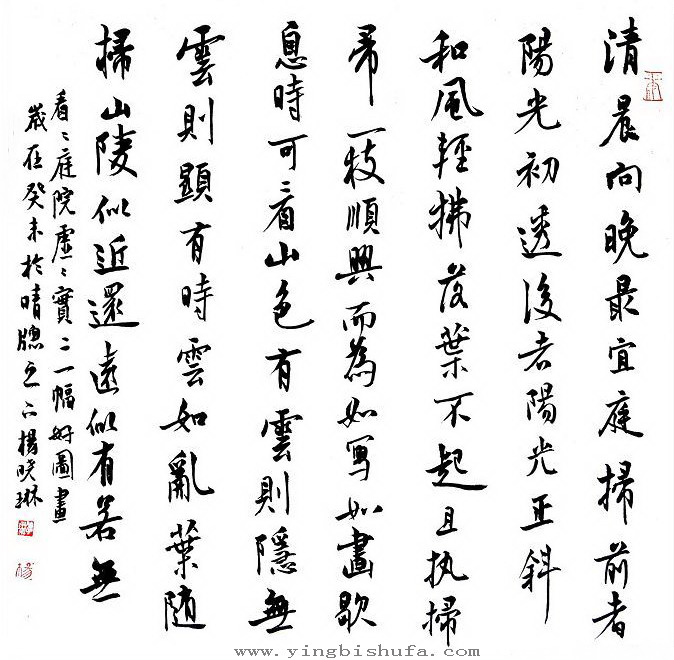 清晨向晚最宜庭掃前者
陽光初透後者陽光正斜
和風輕拂落葉不起且执掃
帚一枝順興而為如写如畫歇
息時可看山色有雲則隱無
雲則顯有時雲如亂葉随
掃山陵似近還遠似有若無
看〻庭院虛〻實〻一幅好圖畫
嵗在癸未於晴牕之下楊晓琳
www.yingbishufa.com